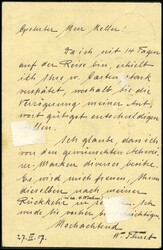 Geehrter Herr Keller.
Da ich seit 14 Tagen
auf der Reise bin, erhielt
ich Ihre w. Karten stark
verspätet, weshalb Sie die
Verzögerung meiner Ant-
wort gütigst entschuldigen
wollen.
Ich glaube, dass ich
von den gewünschten Schwei-
zer Marken diverses besitze
Es wird mich freuen, Ihnen
dieselben nach meiner
Rückkehr in
Hochachtend
27. II. 07.